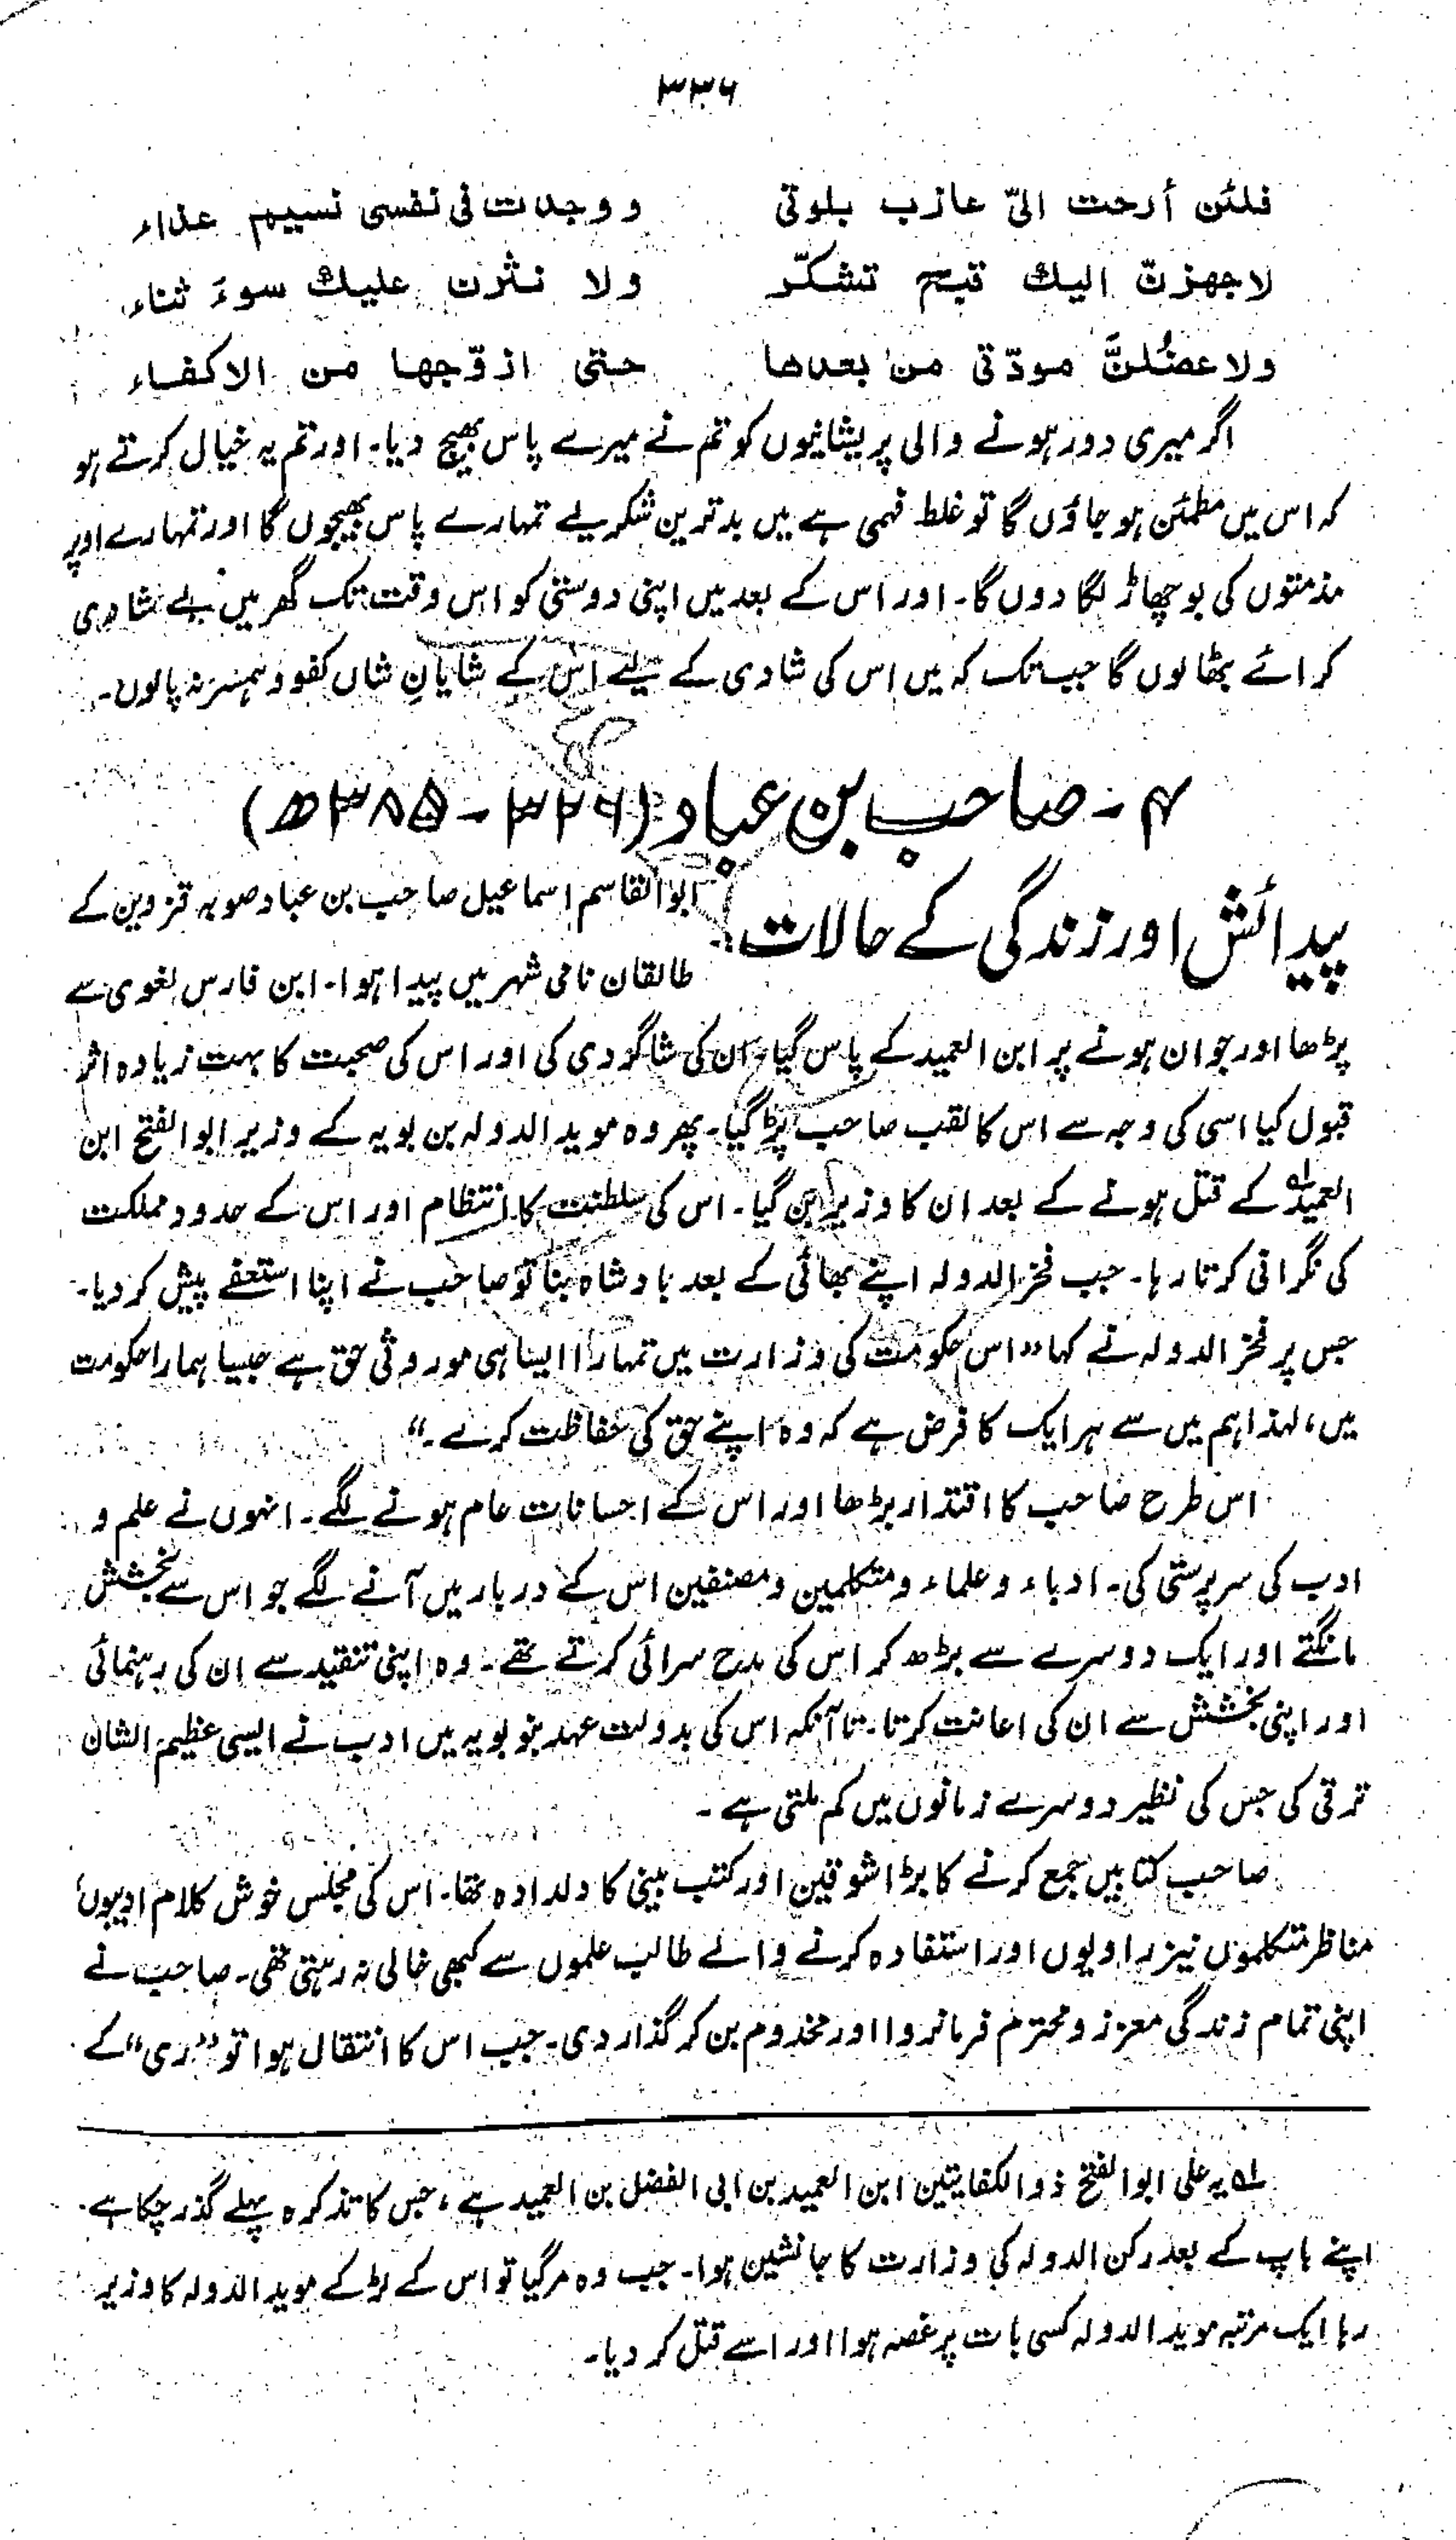 ۳۳۶
فلئن أرحت الیّ عازب بلوتی ووجدت فی نفسی نسیم عذاء
لاجهزنّ الیك قبح تشکّر ولا نثرن علیك سوءَ ثناء
ولاعضُلنَّ مودّتی من بعدها حتی ازوّجها من الاکفاء
اگر میری دور ہونے والی پریشانیوں کو تم نے میرے پاس بھیج دیا۔ اور تم یہ خیال کرتے ہو
کہ اس میں مطمئن ہو جاؤں گا تو غلط فہمی ہے میں بدترین شکریے تمہارے پاس بھیجوں گا اور تمہارے اوپر
مذمتوں کی بوچھاڑ لگا دوں گا۔ اور اس کے بعد میں اپنی دوستی کو اس وقت تک گھر میں بے شادی
کرائے بٹھا لوں گا جب تک کہ میں اس کی شادی کے لیے اس کے شایانِ شاں کفو و ہمسر نہ پا لوں۔
۴ - صاحب بن عباد (۳۲۶ - ۳۸۵ھ)
پیدائش اور زندگی کے حالات: ابوالقاسم اسماعیل صاحب بن عباد صوبہ قزوین کے
طالقان نامی شہر میں پیدا ہوا۔ ابن فارس لغوی سے
پڑھا اور جوان ہونے پر ابن العمید کے پاس گیا، ان کی شاگردی کی اور اس کی صحبت کا بہت زیادہ اثر
قبول کیا اسی کی وجہ سے اس کا لقب صاحب پڑ گیا۔ پھر وہ موید الدولہ بن بویہ کے وزیر ابو الفتح ابن
العمیدلہ کے قتل ہونے کے بعد ان کا وزیر بن گیا۔ اس کی سلطنت کا انتظام اور اس کے حدود مملکت
کی نگرانی کرتا رہا۔ جب فخر الدولہ اپنے بھائی کے بعد بادشاہ بنا تو صاحب نے اپنا استعفے پیش کر دیا۔
جس پر فخر الدولہ نے کہا ”اس حکومت کی وزارت میں تمہارا ایسا ہی موروثی حق ہے جیسا ہمارا حکومت
میں، لہذا ہم میں سے ہر ایک کا فرض ہے کہ وہ اپنے حق کی حفاظت کرے۔“
اس طرح صاحب کا اقتدار بڑھا اور اس کے احسانات عام ہونے لگے۔ انہوں نے علم و
ادب کی سرپرستی کی۔ ادباء و علماء و متکلمین و مصنفین اس کے دربار میں آنے لگے جو اس سے بخشش
مانگتے اور ایک دوسرے سے بڑھ کر اس کی مدح سرائی کرتے تھے۔ وہ اپنی تنقید سے ان کی رہنمائی
اور اپنی بخشش سے ان کی اعانت کرتا۔ تا آنکہ اس کی بدولت عہد بنو بویہ میں ادب نے ایسی عظیم الشان
ترقی کی جس کی نظیر دوسرے زمانوں میں کم ملتی ہے۔
صاحب کتابیں جمع کرنے کا بڑا شوقین اور کتب بینی کا دلدادہ تھا۔ اس کی مجلس خوش کلام ادیبوں،
مناظر متکلموں نیز راویوں اور استفادہ کرنے والے طالب علموں سے کبھی خالی نہ رہتی تھی۔ صاحب نے
اپنی تمام زندگی معزز و محترم فرمانروا اور مخدوم بن کر گذار دی۔ جب اس کا انتقال ہوا تو ”ری“ کے
لہ یہ علی ابوالفتح ذوالکفایتین ابن العمید بن ابی الفضل بن العمید ہے، جس کا تذکرہ پہلے گذر چکا ہے۔
اپنے باپ کے بعد رکن الدولہ کی وزارت کا جانشین ہوا۔ جب وہ مر گیا تو اس کے لڑکے موید الدولہ کا وزیر
رہا ایک مرتبہ موید الدولہ کسی بات پر غصہ ہوا اور اسے قتل کر دیا۔